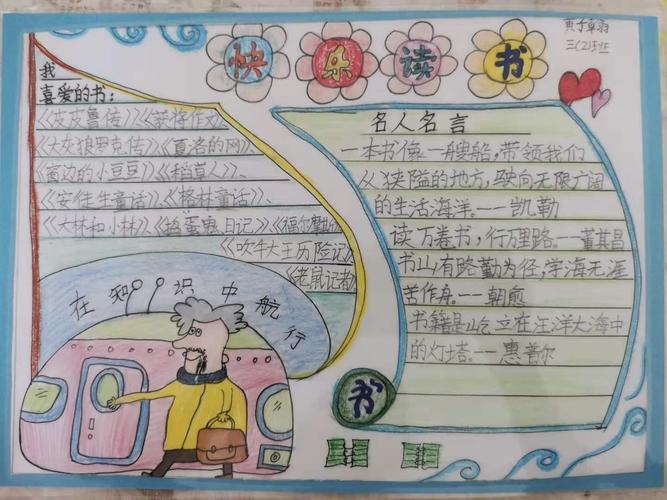 快乐读书
三(2)班
我
喜爱的书：
《皮皮鲁传》《获奖作文》
《大灰狼罗克传》《夏洛的网》
《窗边的小豆豆》《稻草人》、
《安徒生童话》、《格林童话》、
《大林和小林》、《笨蛋狼日记》、《福尔摩斯
《吹牛大王历险记》
《老鼠记者》
在知识中航行
名人名言
一本书像一艘船，带领我们
从狭隘的地方，驶向无限广阔
的生活海洋。——凯勒
读万卷书，行万里路。——董其昌
书山有路勤为径，学海无涯
苦作舟。——朝愈
书籍是屹立在汪洋大海中
的灯塔。——惠普尔
书